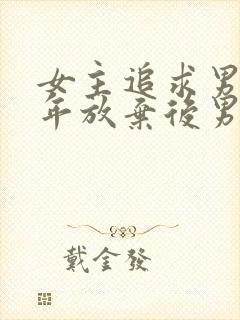 女主追求男
年放棄後男
戴金發